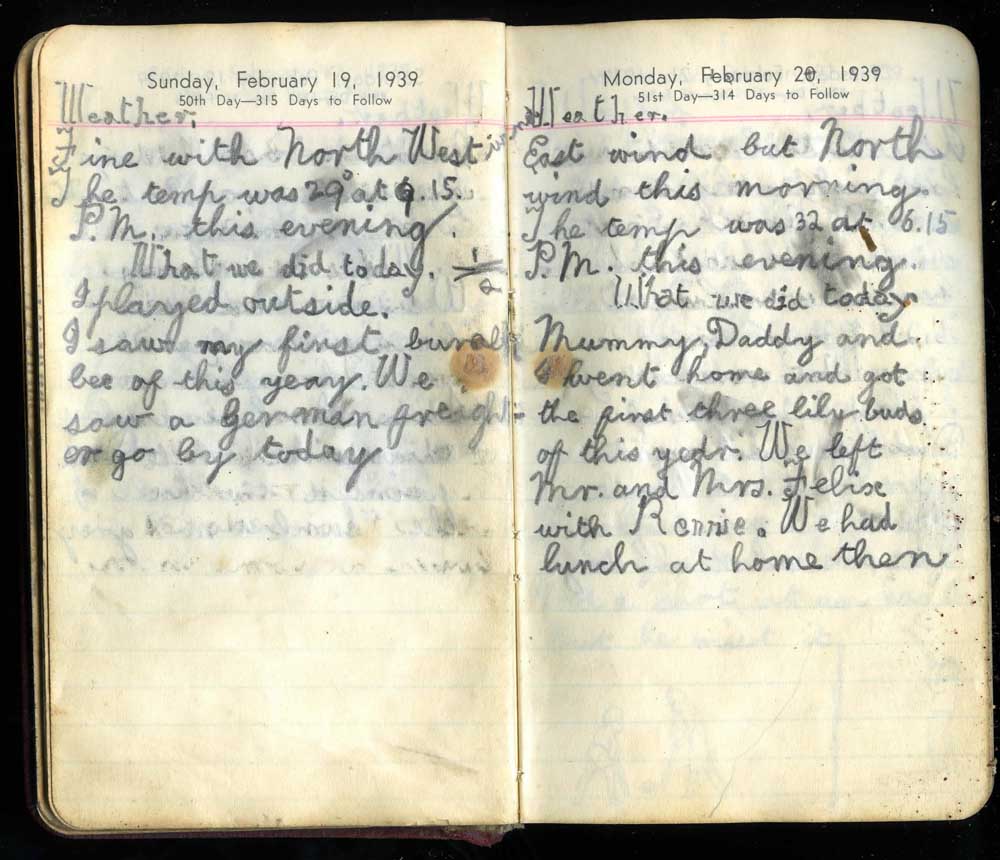 Sunday, February 19, 1939
50th Day—315 Days to Follow
Weather.
Fine with North West wind
The temp was 29° at 6.15.
P.M. this evening.
What we did today.
I played outside.
I saw my first
bee of this year. We
saw a German freight-
er go by today
Monday, February 20, 1939
51st Day—314 Days to Follow
Weather.
East wind but North
wind this morning.
The temp was 32 at 6.15
P.M. this evening.
What we did today.
Mummy, Daddy and
I went home and got
the first three lily buds
of this year. We left
Mr. and Mrs. Felix
with Rennie. We had
lunch at home then